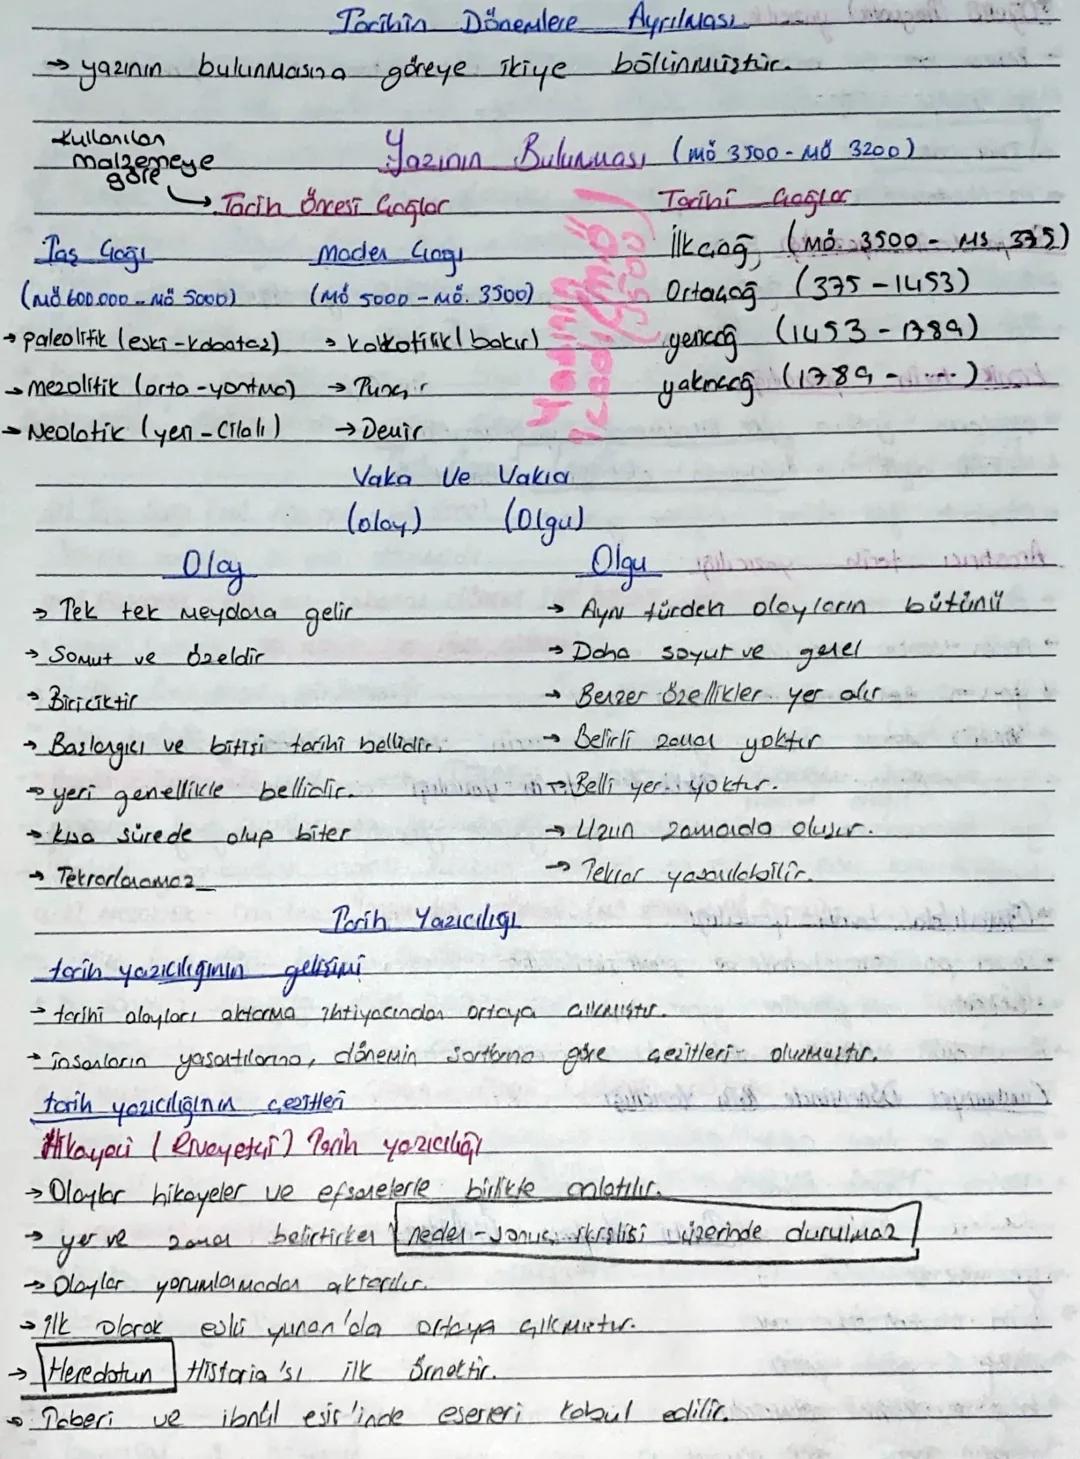 Tarihin Dönemlere Ayrılması
→ yazının bulunmasına göreye ikiye bölünmüştür.
Kullanılan malzemeye göre
Yazının Bulunması (MÖ 3500 - MÖ 3200)
→ Tarih Öncesi Çağlar
Tarihi Çağlar
Taş Çağı
(MÖ 600.000 - MÖ 5000)
→ paleolitik (eski - kabataş)
→ mezolitik (orta - yontma)
→ Neolotik (yeni - Cilalı)
Maden Çağı
(MÖ 5000 - MÖ. 3500)
→ kalkotilik (bakır)
→ Tunç
→ Demir
Yazının icadı (MÖ 3500)
İlkçağ (MÖ. 3500 - MS 375)
Ortaçağ (375 - 1453)
yeniçağ (1453 - 1789)
yakınçağ (1789 - ....)
Vaka Ve Vakıa
(olay) (Olgu)
Olay
→ Tek tek meydana gelir
→ Somut ve özeldir
→ Biriciktir
→ Başlangıcı ve bitişi tarihi bellidir.
→ yeri genellikle bellidir.
→ kısa sürede olup biter
→ Tekrarlanamaz
Olgu
→ Aynı türden olayların bütünü
→ Daha soyut ve genel
→ Benzer özellikler yer alır
→ Belirli zaman yoktur
→ Belli yer yoktur.
→ Uzun zamanda oluşur.
→ Tekrar yaşanılabilir.
Tarih Yazıcılığı
tarih yazıcılığının gelişimi
→ tarihi olayları aktarma ihtiyacından ortaya çıkmıştır.
→ insanların yaşantılarına, dönemin şartlarına göre çeşitleri oluşmuştur.
tarih yazıcılığının çeşitleri
Hikayeci (Rivayetçi) Tarih yazıcılığı
→ Olaylar hikayeler ve efsanelerle birlikte anlatılır.
→ yer ve zaman belirtirken neden - sonuç ilişkisi üzerinde durulmaz
→ Olaylar yorumlamadan aktarılır.
→ ilk olarak eski yunan'da ortaya çıkmıştır.
→ Heredotun Historia'sı ilk örnektir.
→ Taberi ve ibnül esir'inde eserleri kabul edilir.